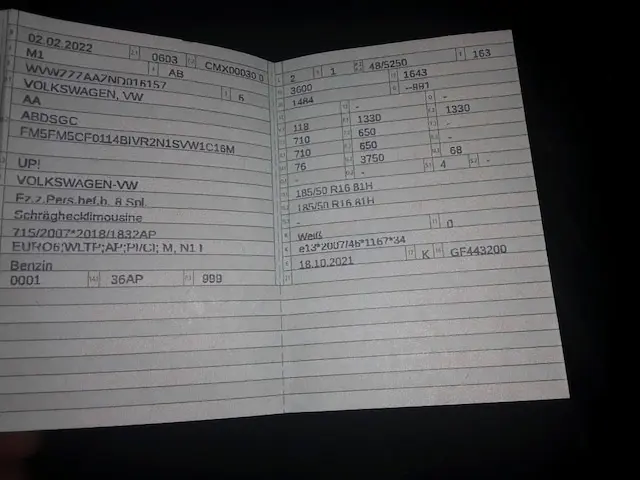 02.02.2022 0603 CMX00030 0
M1 AB
WVWZZZAAZND016157 6
VOLKSWAGEN, VW
AA
ABDSGC
FM5FM5CF0114BIVR2N1SVW1C16M
UP!
VOLKSWAGEN-VW
Fz.z.Pers.bef.b. 8 Spl.
Schräghecklimousine
715/2007*2018/1832AP
EURO6;WLTP;AP;PI/CI; M, N1 I
Benzin
0001 36AP 999
2 1 48/5250 163
3600 1643
1484 --891
- -
118 1330 1330
710 650 -
710 650 -
76 3750 68
- 4 -
185/50 R16 81H
185/50 R16 81H
-
Weiß 0
e13*2007/46*1167*34
18.10.2021 K GF443200